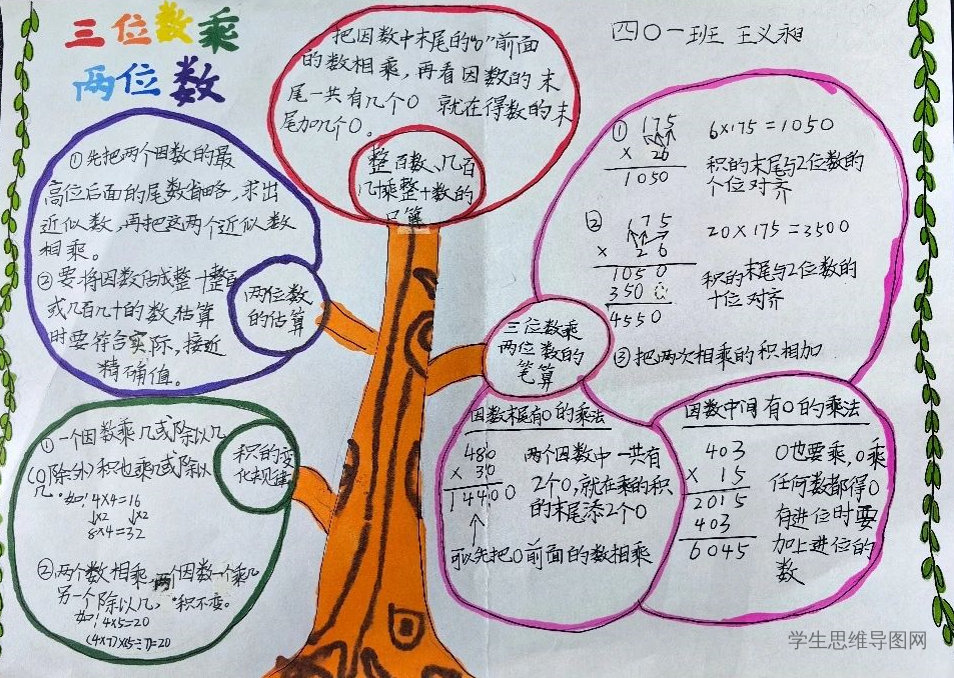 三位数乘
两位数
四〇一班 王义昶
把因数中末尾的“0”前面
的数相乘,再看因数的末
尾一共有几个0 就在得数的末
尾加几个0。
整百数、几百
几十乘整十数的
口算
①先把两个因数的最
高位后面的尾数省略,求出
近似数,再把这两个近似数
相乘。
②要将因数估成整十整百
或几百几十的数,估算
时要符合实际,接近
精确值。
两位数
的估算
①一个因数乘几或除以几
(0除外)积也乘几或除以
几。如:4×4=16
↓×2 ↓×2
8×4=32
②两个数相乘,两个因数一个乘几
另一个除以几,积不变。
如:4×5=20
(4×7)×(5÷7)=20
积的变
化规律
三位数乘
两位数的
笔算
① 175
× 26
1050
6×175=1050
积的末尾与2位数的
个位对齐
② 175
× 26
1050
350
4550
20×175=3500
积的末尾与2位数的
十位对齐
③把两次相乘的积相加
因数末尾有0的乘法
480
× 30
14400
两个因数中一共有
2个0,就在乘的积
的末尾添2个0
可以先把0前面的数相乘
因数中间有0的乘法
403
× 15
2015
403
6045
0也要乘,0乘
任何数都得0
有进位时要
加上进位的
数
学生思维导图网